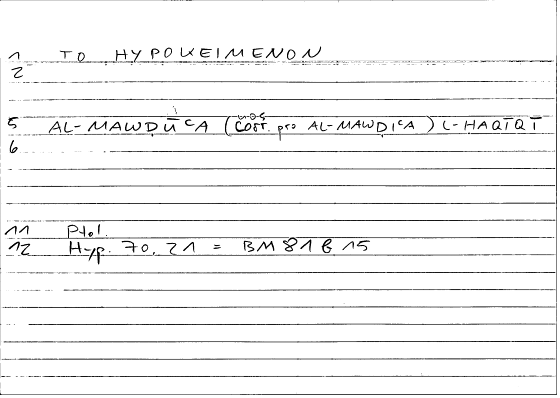 1 TO HYPOKEIMENON
2
5 AL-MAWḌŪʿA (corr. pro AL-MAWḌIʿA) L-ḤAQĪQĪ
6
11 Ptol.
12 Hyp. 70.21 = BM 81 b 15